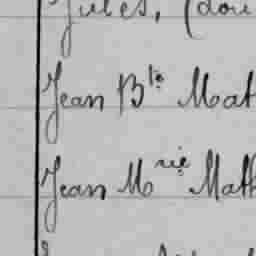 Jules, (dou
Jean Bte Mat
Jean Mrie Math